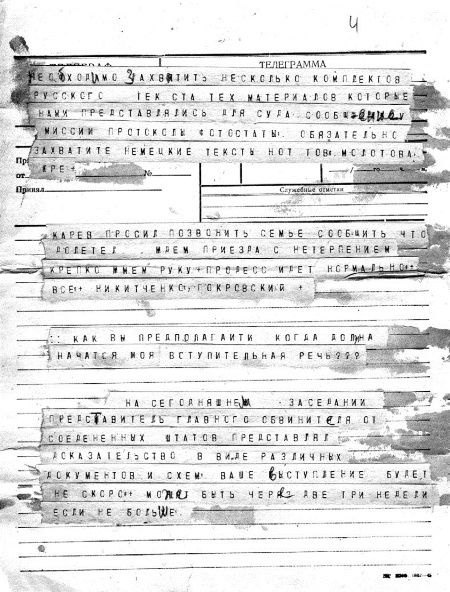 4
ТЕЛЕГРАФ
ТЕЛЕГРАММА
НЕОБХОДИМО ЗАХВАТИТЬ НЕСКОЛЬКО КОМПЛЕКТОВ
РУССКОГО ТЕКСТА ТЕХ МАТЕРИАЛОВ КОТОРЫЕ
НАМИ ПРЕДСТАВЛЯЛИСЬ ДЛЯ СУДА
МИССИИ ПРОТОКОЛЫ ФОТОСТАТЫ ОБЯЗАТЕЛЬНО
ЗАХВАТИТЕ НЕМЕЦКИЕ ТЕКСТЫ НОТ ТОВ МОЛОТОВА
от №
Принял
Служебные отметки
КАРЕВ ПРОСИЛ ПОЗВОНИТЬ СЕМЬЕ СООБЩИТЬ ЧТО
ДОЛЕТЕЛ ЖДЕМ ПРИЕЗДА С НЕТЕРПЕНИЕМ
КРЕПКО ЖМЕМ РУКУ+ ПРОЦЕСС ИДЕТ НОРМАЛЬНО++
ВСЕ++ НИКИТЧЕНКО ПОКРОВСКИЙ +
:: КАК ВЫ ПРЕДПОЛАГАИТИ КОГДА ДОЛЖНА
НАЧАТСЯ МОЯ ВСТУПИТЕЛЬНАЯ РЕЧЬ???
НА СЕГОДНЯШНЕМ ЗАСЕДАНИИ
ПРЕДСТАВИТЕЛЬ ГЛАВНОГО ОБВИНИТЕЛЯ ОТ
СОЕДЕНЕННЫХ ШТАТОВ ПРЕДСТАВЛЯЛ
ДОКАЗАТЕЛЬСТВО В ВИДЕ РАЗЛИЧНЫХ
ДОКУМЕНТОВ И СХЕМ ВАШЕ ВЫСТУПЛЕНИЕ БУДЕТ
НЕ СКОРО++ МОЖЕ БЫТЬ ЧЕРЕЗ ДВЕ ТРИ НЕДЕЛИ
ЕСЛИ НЕ БОЛЬШЕ